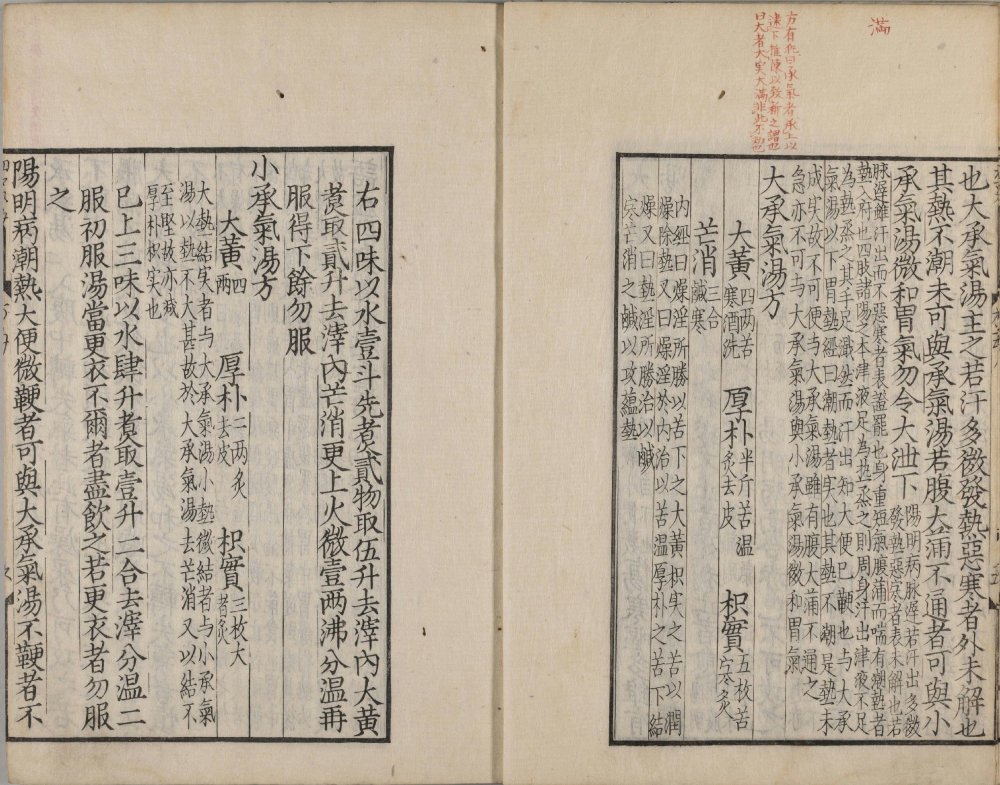 滿
方有執曰承氣者承上以
逮下推陳以致新之謂也
曰大者大實大滿非此不効也
也大承氣湯主之若汗多微發熱惡寒者外未解也
其熱不潮未可與承氣湯若腹大蒲不通者可與小
承氣湯微和胃氣勿令大泄下
陽明病脉遲若汗出多微
發熱惡寒者表未解也若
脉遲雖汗出而不惡寒者表證罷也身重短氣腹蒲而喘有潮熱者
熱入府也四肢諸陽之本津液足為熱蒸之則周身汗出津液不足
為熱蒸之其手足濈然而汗出知大便巳鞕也与大承
氣湯以下胃熱經曰潮熱者実也其熱不潮是熱未
成実故不可便与大承氣湯雖有腹大蒲不通之
急亦不可与大承氣湯與小承氣湯微和胃氣
大承氣湯方
大黄 四两苦寒酒洗 厚朴 半斤苦温炙去皮 枳實 五枚苦寒炙
芒消 三合鹹寒
内經曰燥淫所勝以苦下之大黄枳実之苦以潤
燥除熱又曰燥淫於内治以苦温厚朴之苦下結
燥又曰熱淫所勝治以鹹
寒芒消之鹹以攻藴熱
右四味以水壹斗先煑貳物取伍升去滓内大黄
煑取貳升去滓内芒消更上火微壹两沸分温再
服得下餘勿服
小承氣湯方
大黄 四两 厚朴 二两炙去皮 枳實 三枚大者炙
大熱結実者与大承氣湯小熱微結者与小承氣
湯以熱不大甚故於大承氣湯去芒消又以結不
至堅故亦减
厚朴枳実也
巳上三味以水肆升煑取壹升二合去滓分温二
服初服湯當更衣不爾者盡飲之若更衣者勿服
之
陽明病潮熱大便微鞕者可與大承氣湯不鞕者不